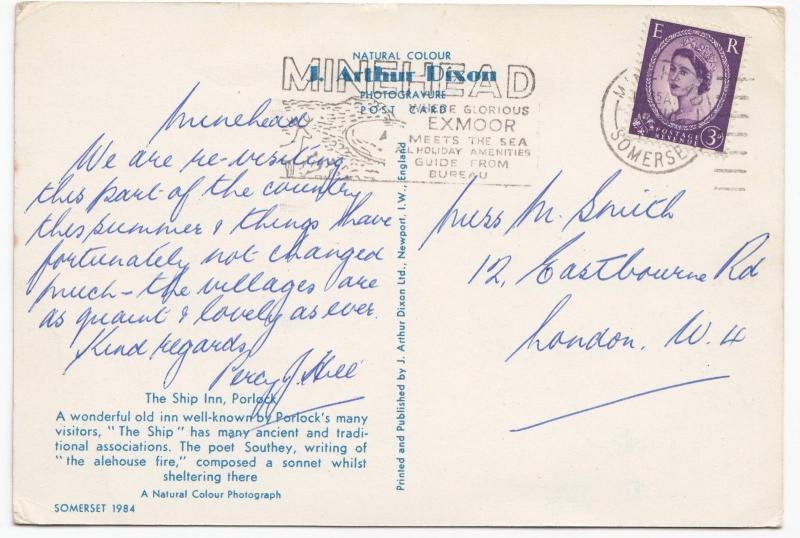 NATURAL COLOUR
J. Arthur Dixon
PHOTOGRAVURE
POST CARD
MINEHEAD
WHERE GLORIOUS
EXMOOR
MEETS THE SEA
HOLIDAY AMENITIES
GUIDE FROM
BUREAU
E R
POSTAGE REVENUE
3D
SOMERSET
Minehead
We are re-visiting
this part of the country
this summer & things have
fortunately not changed
much - the villages are
as quaint & lovely as ever.
Kind regards,
Percy J. Hill
The Ship Inn, Porlock
A wonderful old inn well-known by Porlock's many
visitors, "The Ship" has many ancient and tradi-
tional associations. The poet Southey, writing of
"the alehouse fire," composed a sonnet whilst
sheltering there
A Natural Colour Photograph
SOMERSET 1984
Printed and Published by J. Arthur Dixon Ltd., Newport, I.W., England
Miss M. Smith
12, Eastbourne Rd
London. W.4